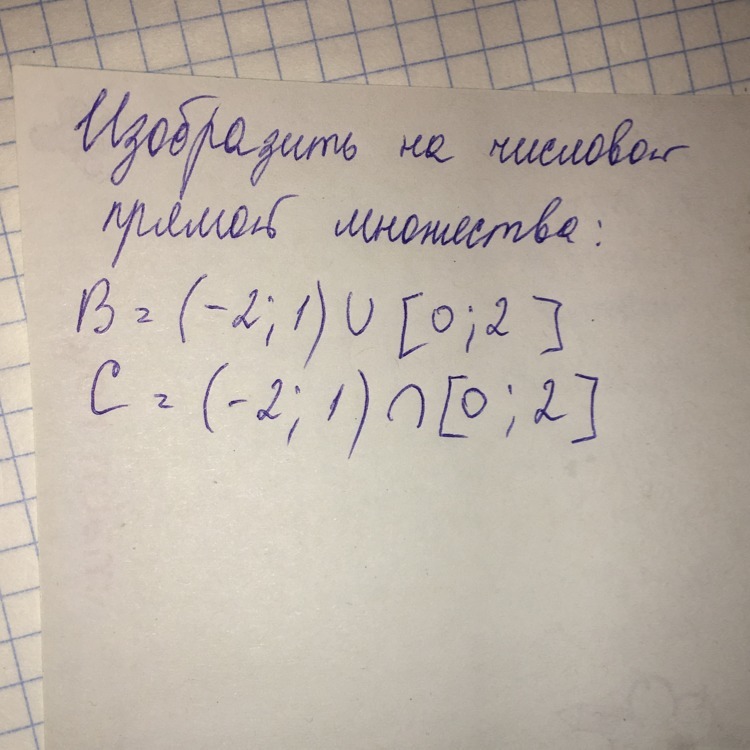 Изобразить на числовой
прямой множества:
B = (-2; 1) ∪ [0; 2]
C = (-2; 1) ∩ [0; 2]